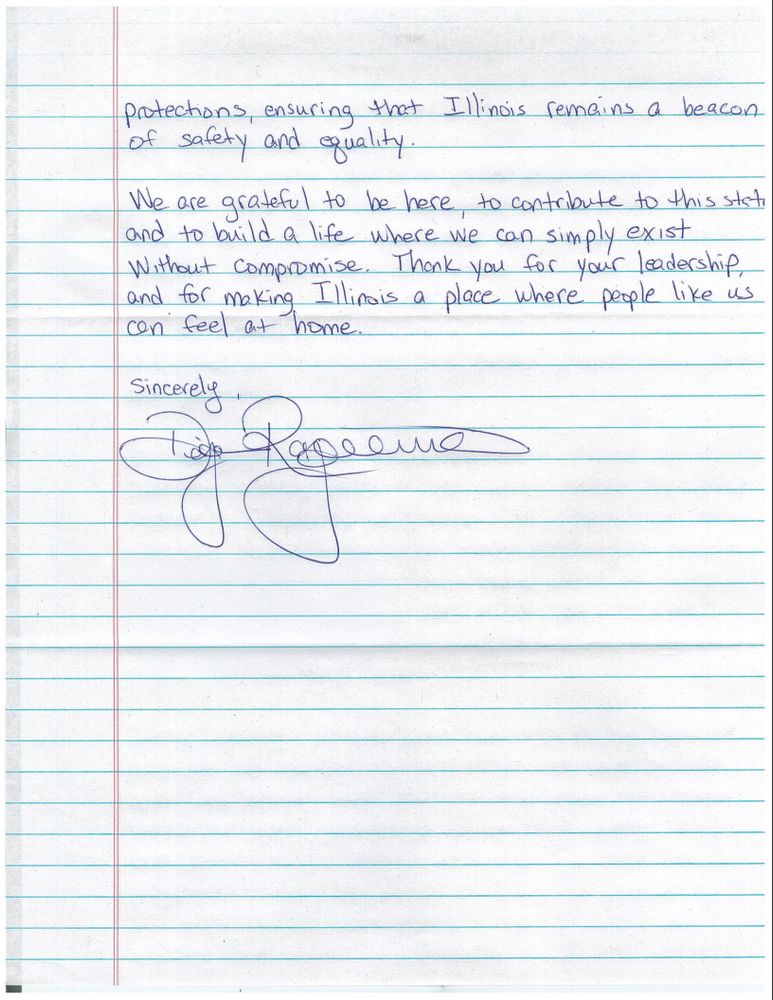 protections, ensuring that Illinois remains a beacon
of safety and equality.
We are grateful to be here, to contribute to this stat
and to build a life where we can simply exist
Without compromise. Thank you for your leadership,
and for making Illinois a place where people like us
can feel at home.
Sincerely,